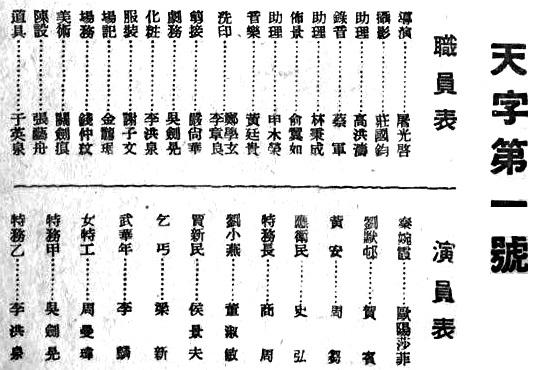 天字第一號
職員表
導演 屠光啓
攝影 莊國鈞
助理 高洪濤
錄音 蔡軍
助理 林秉成
佈景 俞翼如
助理 申木榮
音樂 黃廷貴
洗印 鄭學玄
李章良
剪接 嚴尚華
劇務 吳劍晃
化粧 李洪泉
服裝 謝子文
場記 金龍琚
場務 錢仲玟
美術 關劍痕
陳設 張藝舟
道具 于英泉
演員表
秦婉霞 歐陽莎菲
劉默邨 賀賓
黃安 周芻
應衛民 史弘
特務長 商周
劉小燕 董淑敏
賈新民 侯景夫
乞丐 梁新
武華年 李麟
女特工 周曼瑋
特務甲 吳劍晃
特務乙 李洪泉